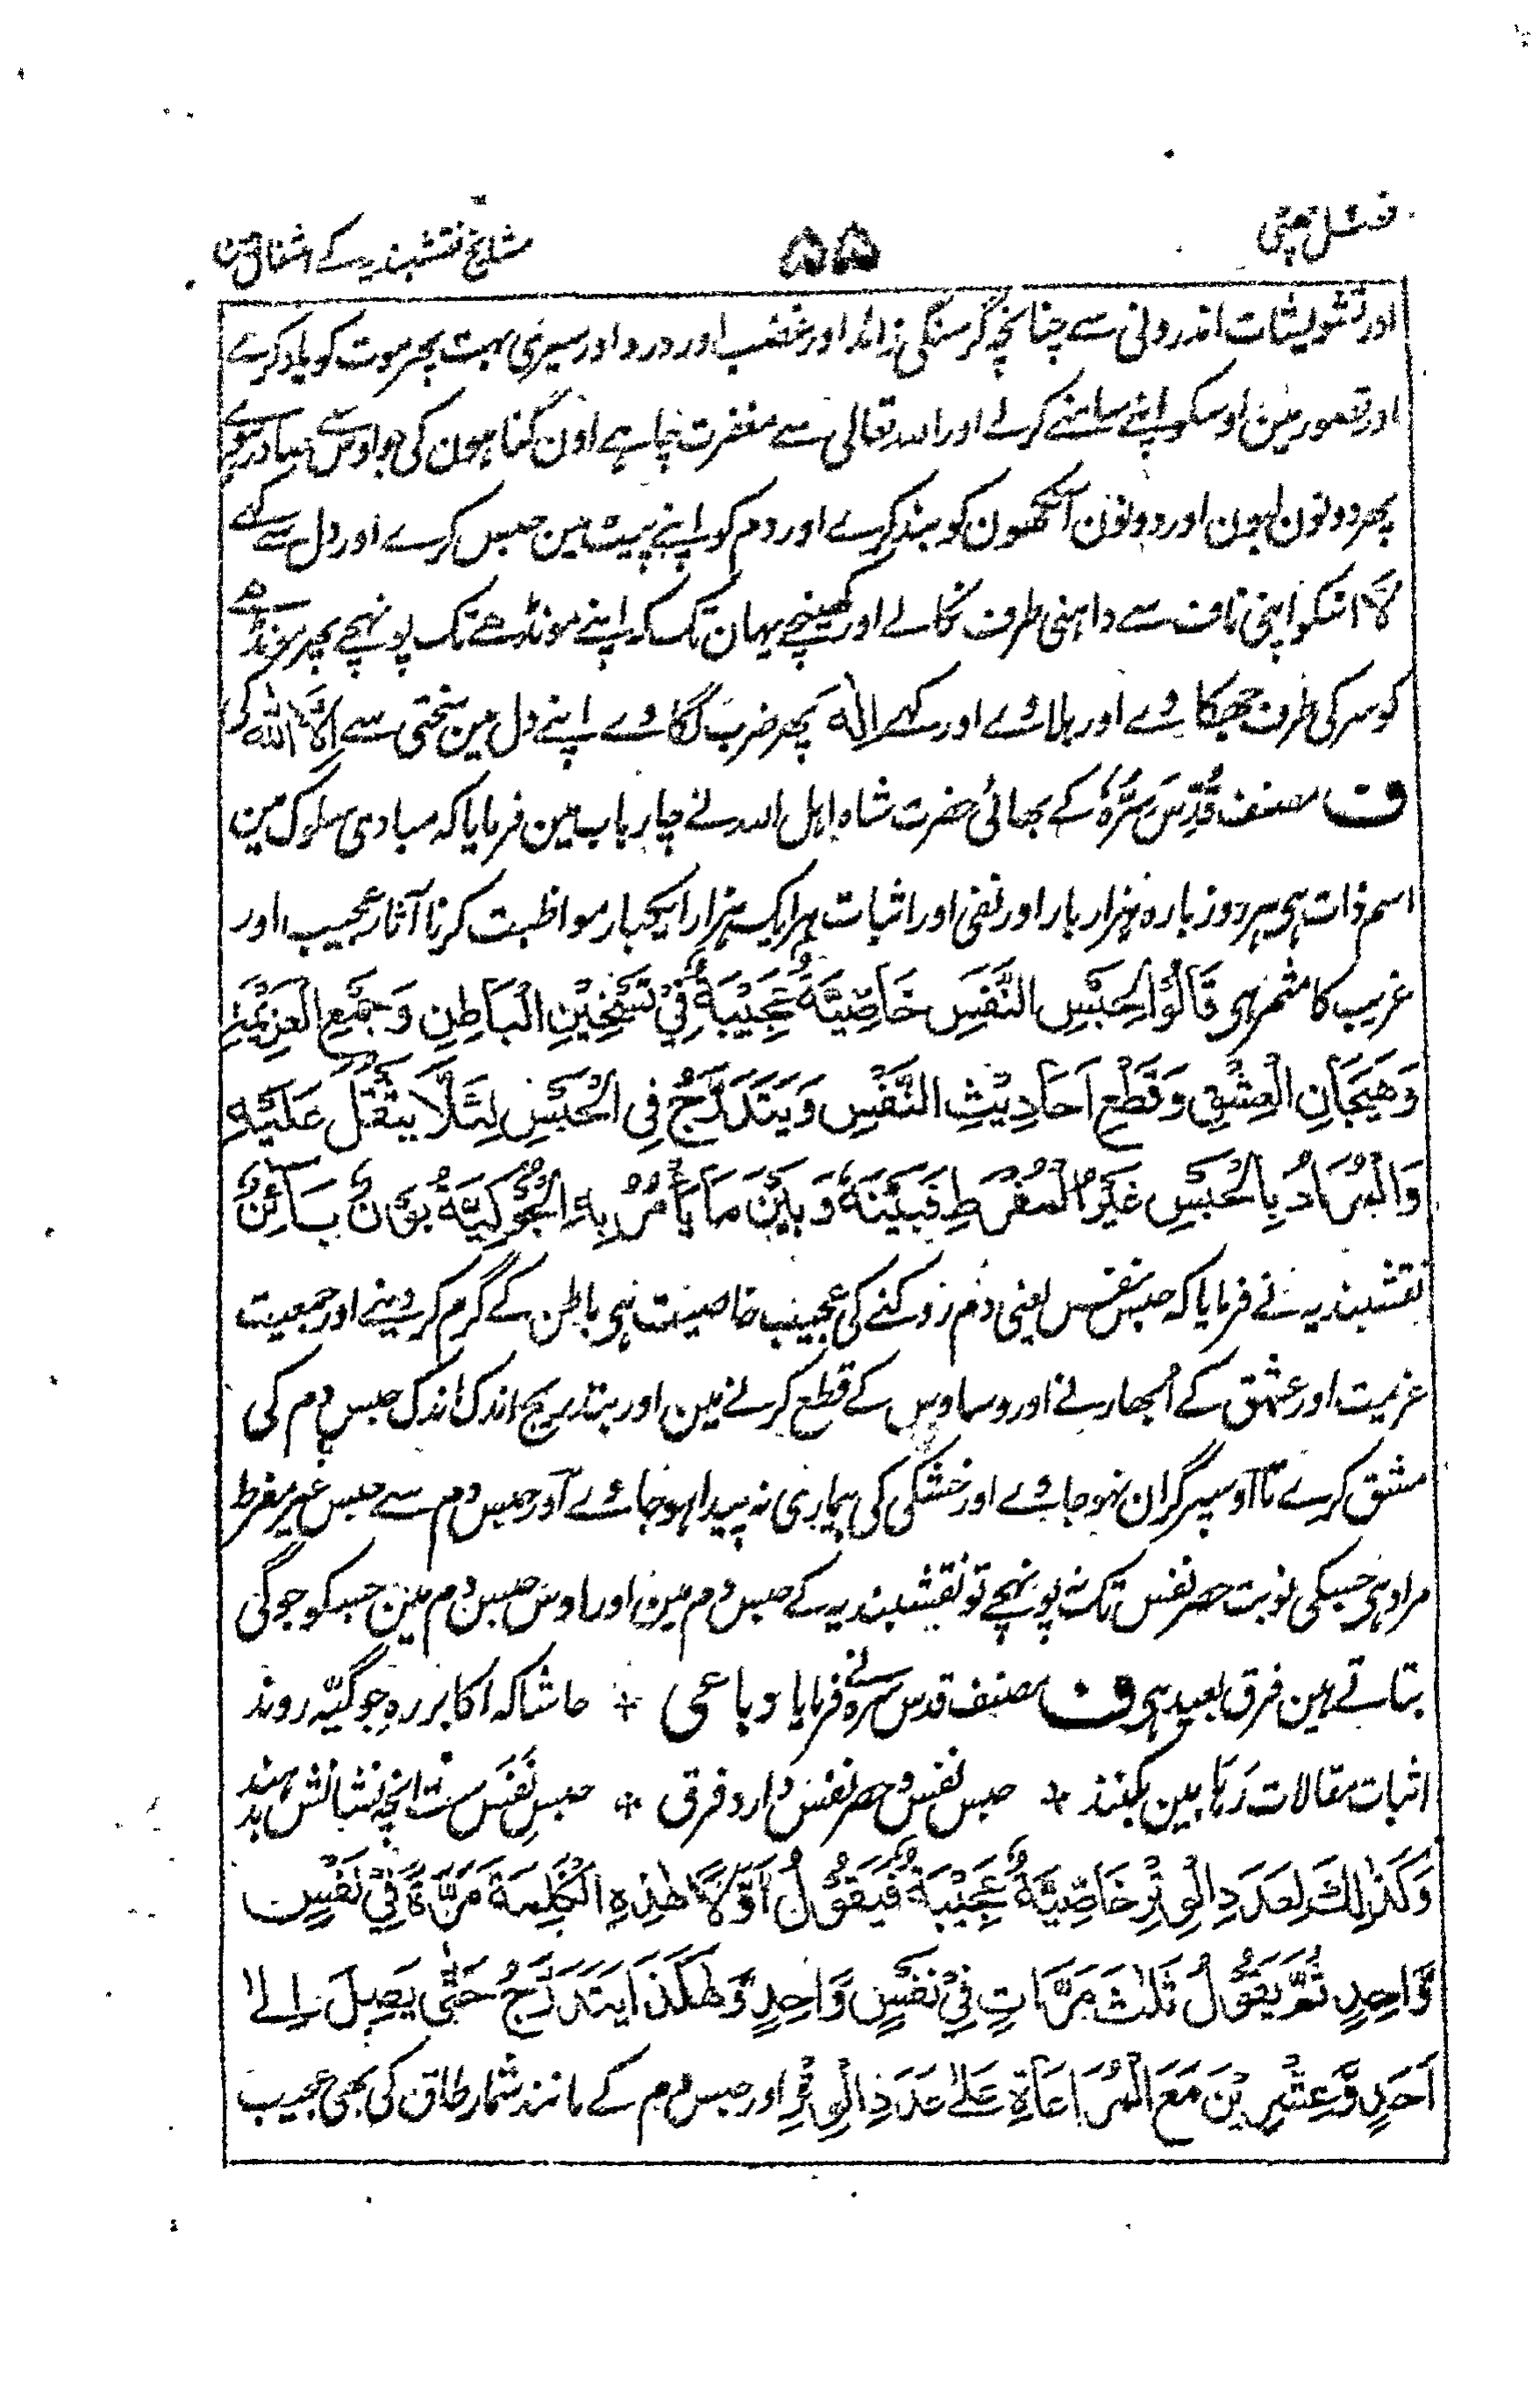 فصل چھٹی ۵۵ مشایخ نقشبندیہ کے اشغال میں
اور تشویشات اندرونی سے چنانچہ گرسنگی زائد اور غضب اور درد اور سیری بہت پھر موت کو یاد کرے
اور تصور مین اوسکو اپنے سامنے کرلے اور اللہ تعالی سے مغفرت چاہے اون گناہون کی جو اوس سے صادر ہوے
پھر دونون لبون اور دونون آنکھون کو بند کرے اور دم کو اپنے پیٹ مین حبس کرے اور دل سے کہے
لَا اسکو اپنی ناف سے داہنی طرف نکالے اور کھینچے یہان تک کہ اپنے مونڈھے تک پونہچے پھر مونڈھے
کو سر کی طرف جھکاوے اور ہلاوے اور کہے اِلٰہَ پھر ضرب لگاوے اپنے دل مین سختی سے اِلَّا اللّٰہ کی
ف مصنف قُدِّسَ سِرُّہٗ کے بھائی حضرت شاہ اہل اللہ نے چار باب مین فرمایا کہ مبادی سلوک مین
اسم ذات ہی ہر روز بارہ ہزار بار اور نفی اور اثبات ہر ایک ہزار ایکبار مواظبت کرنا آثار عجیب اور
غریب کا مثمر ہی قَالُوْا لِحَبْسِ النَّفَسِ خَاصِّيَّةٌ عَجِيْبَةٌ فِيْ تَسْخِيْنِ الْبَاطِنِ وَجَمْعِ الْعَزِيْمَةِ
وَهَيَجَانِ الْعِشْقِ وَقَطْعِ اَحَادِيْثِ النَّفْسِ وَيَتَدَرَّجُ فِي الْحَبْسِ لِئَلَّا يَثْقُلَ عَلَيْهِ
وَالْمُرَادُ بِالْحَبْسِ غَيْرُ الْمُفْرِطِ فَبَيْنَهٗ وَبَيْنَ مَا يَأْمُرُ بِهِ الْجُوْكِيَّةُ بَوْنٌ بَائِنٌ
نقشبندیہ نے فرمایا کہ حبس نفس یعنی دم روکنے کی عجیب خاصیت ہی باطن کے گرم کردینے اور جمعیت
عزیمت اور عشق کے اُبھارنے اور وساوس کے قطع کرنے مین اور بتدریج اندک اندک حبس دم کی
مشق کرے تا اوسپر گران نہوجاوے اور خشکی کی بیماری نہ پیدا ہوجاوے اور حبس دم سے حبس غیر مفرط
مراد ہی جسکی نوبت حصر نفس تک نہ پونہچے تو نقشبندیہ کے حبس دم مین اور اوس حبس دم مین جسکو جوگی
بتاتے ہین فرق بعید ہی ف مصنف قدس سرہ نے فرمایا رباعی ٭ حاشا کہ اکابر رہِ جوگیّہ روند
اثبات مقالات زہابین بکنند ٭ حبس نفس و حصر نفس دارد فرق ٭ حبسِ نَفَس ست انچہ نشانش بدہند
وَكَذٰلِكَ لِعَدَدِ الْوِتْرِ خَاصِّيَّةٌ عَجِيْبَةٌ فَيَقُوْلُ اَوَّلًا هٰذِهِ الْكَلِمَةَ مَرَّةً فِيْ نَفَسٍ
وَّاحِدٍ ثُمَّ يَقُوْلُ ثَلٰثَ مَرَّاتٍ فِيْ نَفَسٍ وَّاحِدٍ وَّهٰكَذَا يَتَدَرَّجُ حَتّٰى يَصِلَ اِلٰى
اَحَدٍ وَّعِشْرِيْنَ مَعَ الْمُرَاعَاةِ عَلٰى عَدَدِ الْوِتْرِ اور حبس دم کے مانند شمار طاق کی بھی عجیب